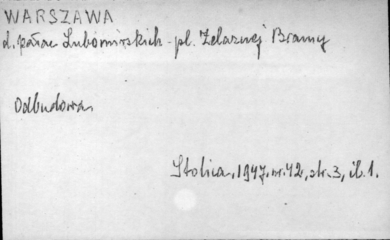 WARSZAWA
d. pałac Lubomirskich - pl. Żelaznej Bramy
Odbudowa
Stolica, 1947, nr. 42, str. 3, il. 1.